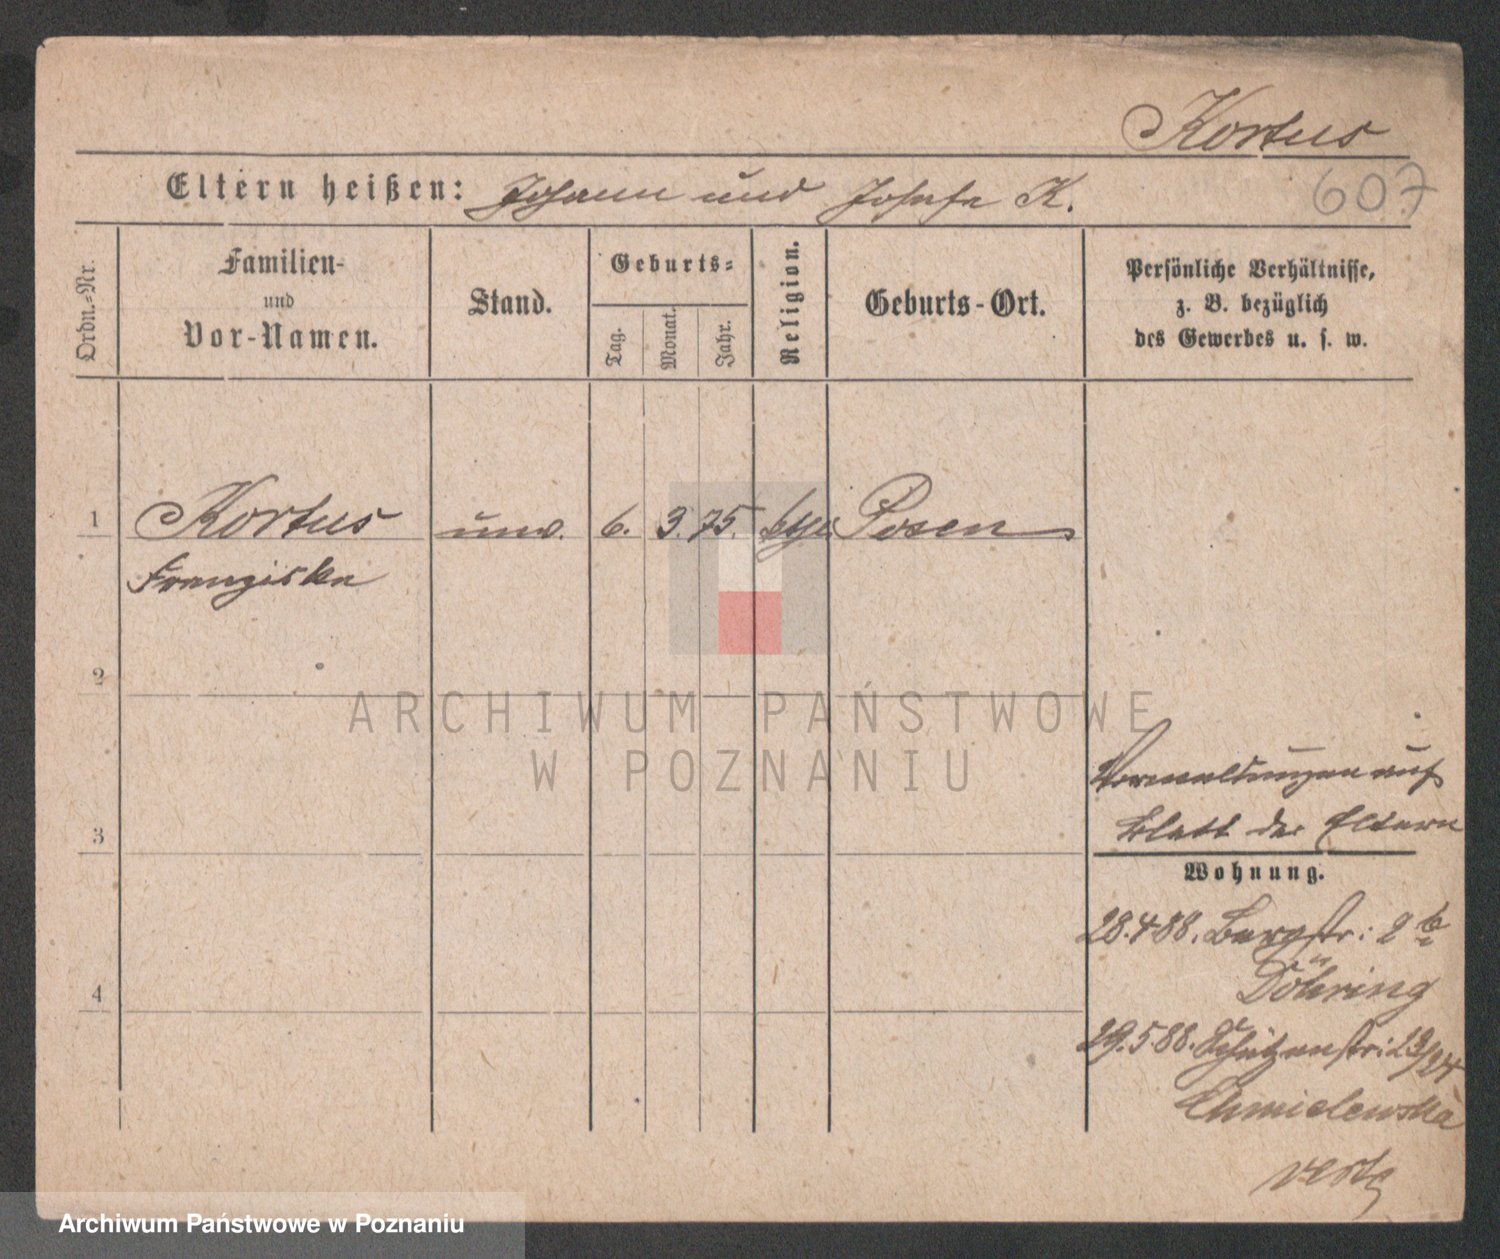 Kortus
607
Eltern heißen: Johann und Josefa K.
Ordn.-Nr.
Familien-
und
Vor-Namen.
Stand.
Geburts-
Tag.
Monat.
Jahr.
Religion.
Geburts-Ort.
Persönliche Verhältnisse,
z. B. bezüglich
des Gewerbes u. s. w.
1 Kortus unv. 6. 3. 75. Posen
Franziska
2
ARCHIWUM PAŃSTWOWE
W POZNANIU
auf
3 Blatt der Eltern
Wohnung.
28.4.88. Bergstr: 2
4 Döhring
29.5.88. Schützenstr: 23/24
Chmielewska
Archiwum Państwowe w Poznaniu